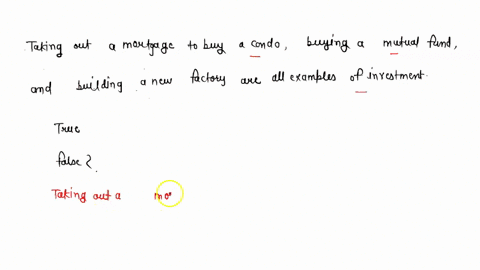 Taking out a mortgage to buy a condo, buying a mutual fund,
and building a new factory are all examples of investment.
True
false ?.
Taking out a mo